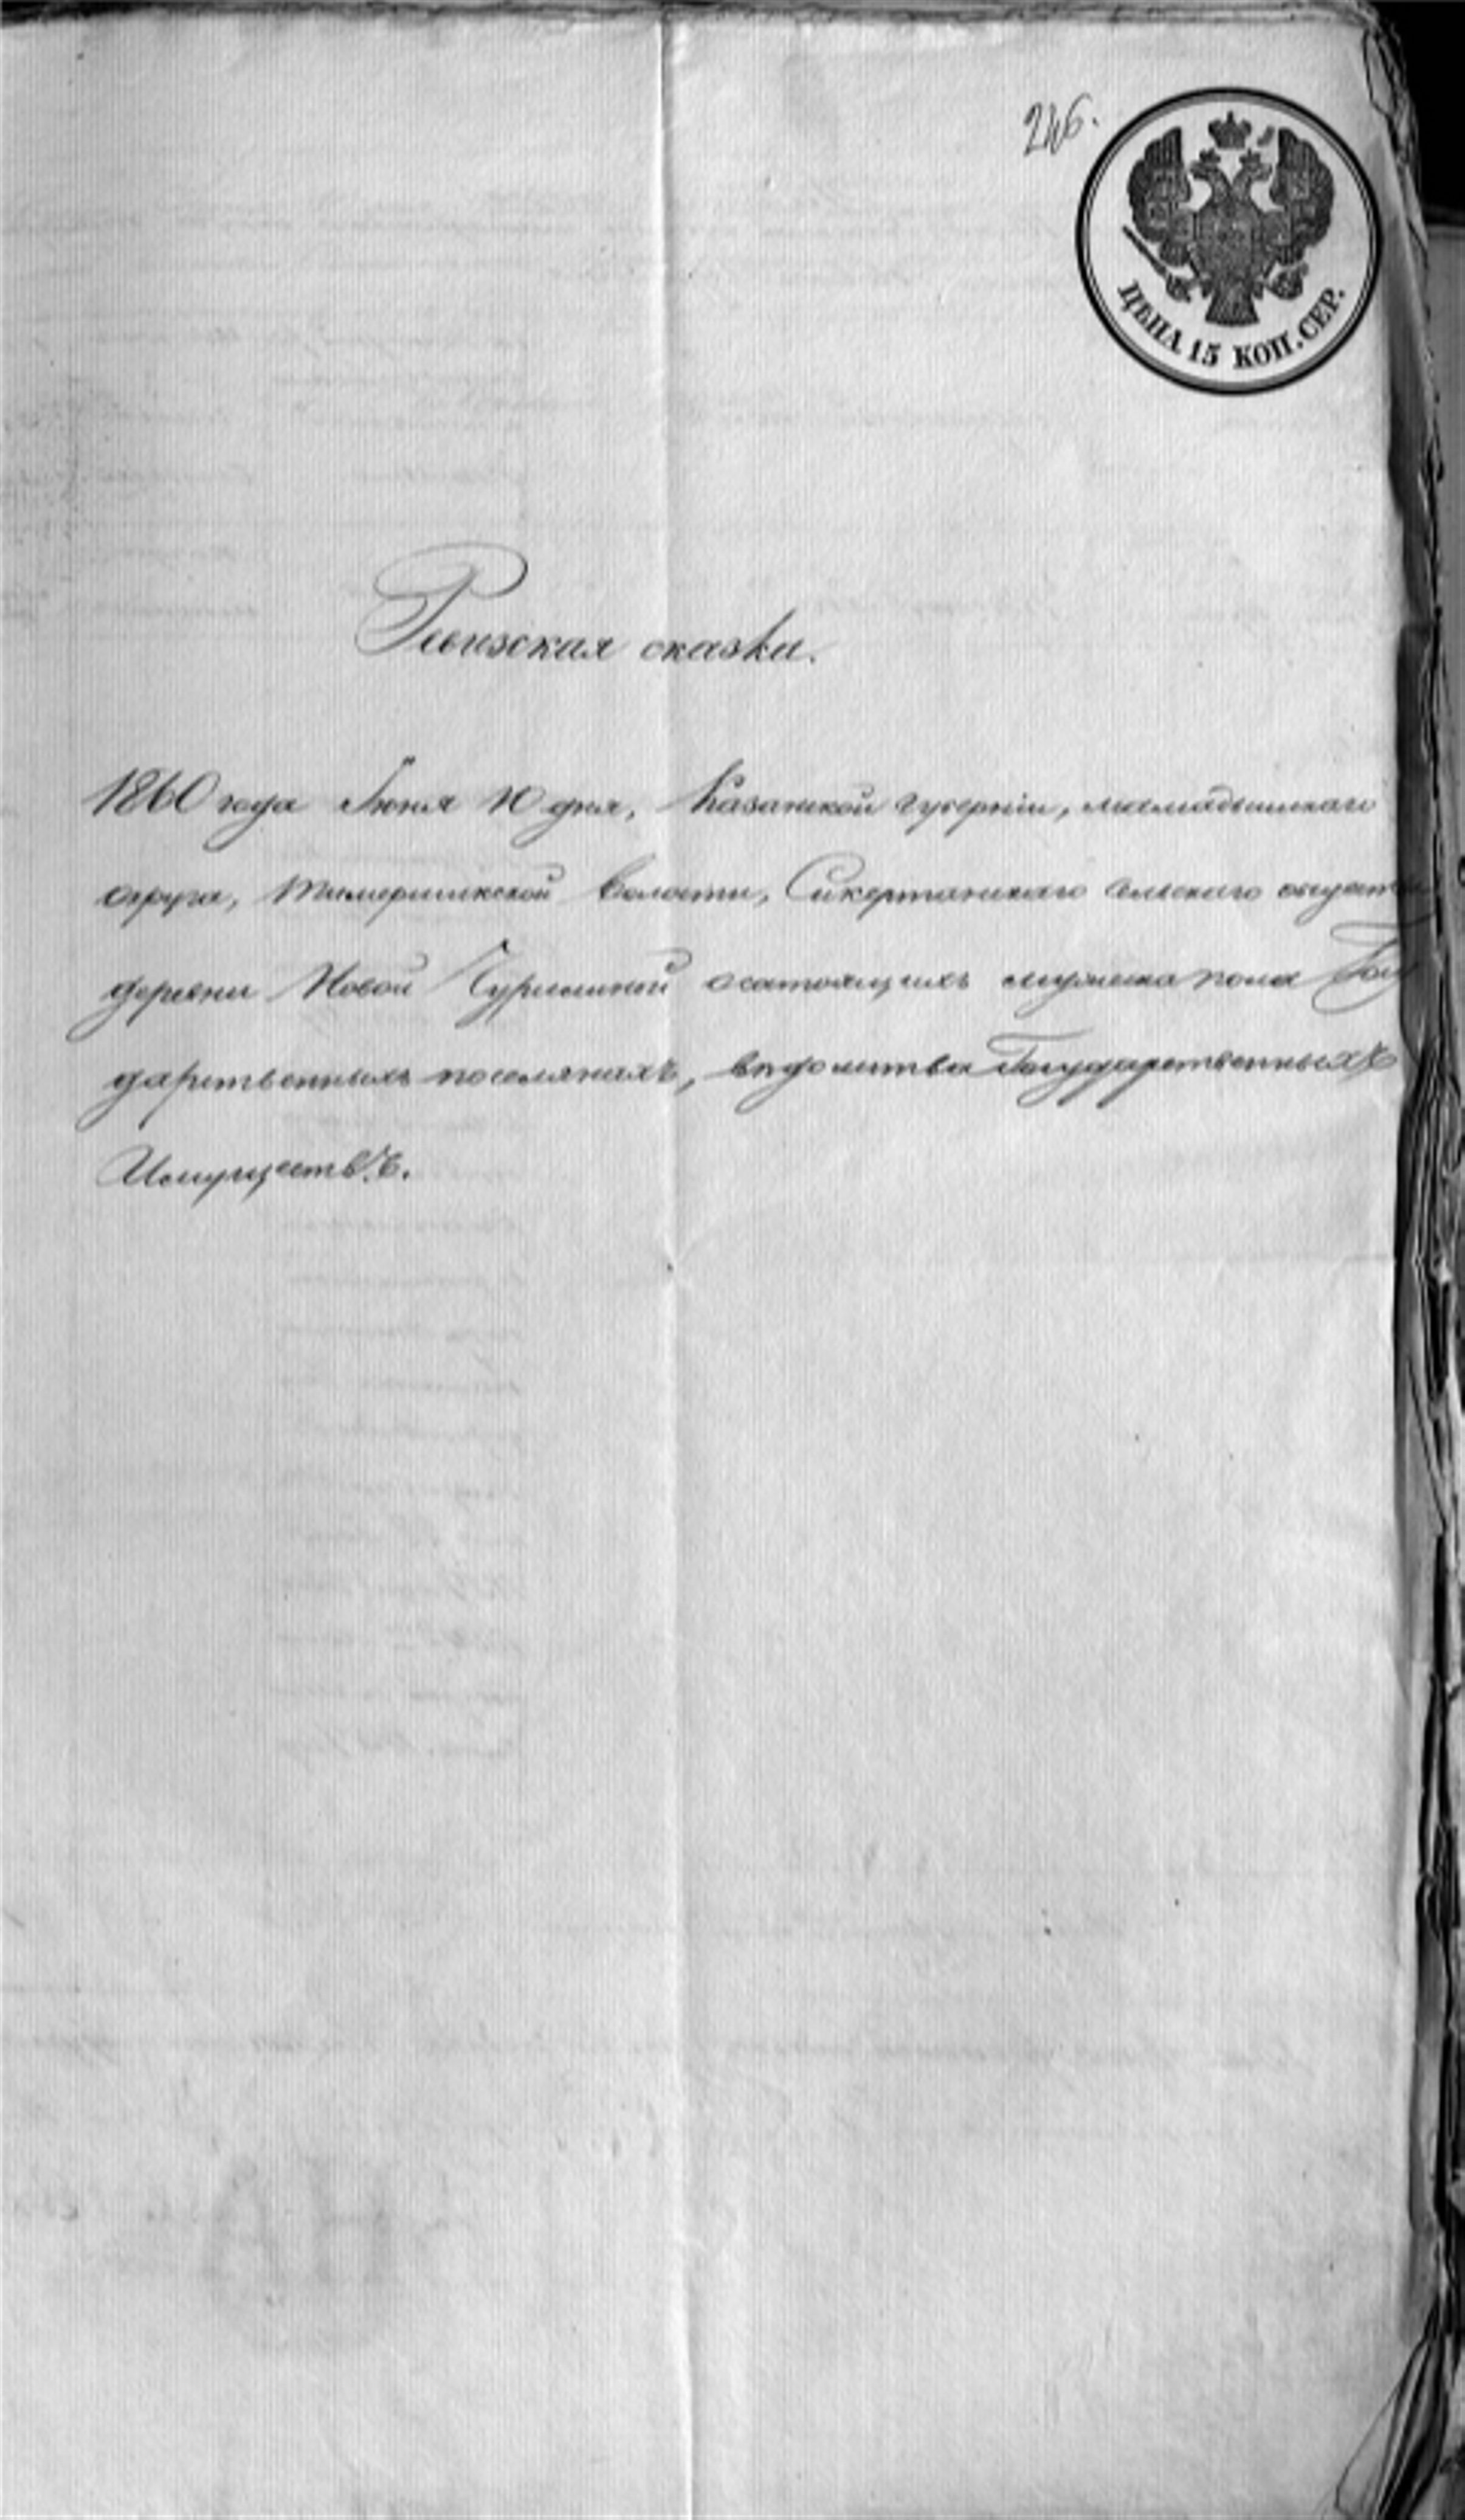 246.
ЦѢНА 15 КОП. СЕР.
Ревизская сказка.
1860 года Іюня 10 дня, Казанской губерніи, мамадышскаго
округа, Сикертанскаго сельскаго общества
деревни Новой Чурилиной осатоящихъ мужеска пола Госу
дарственныхъ поселянахъ, вѣдомства Государственныхъ
Имуществъ.